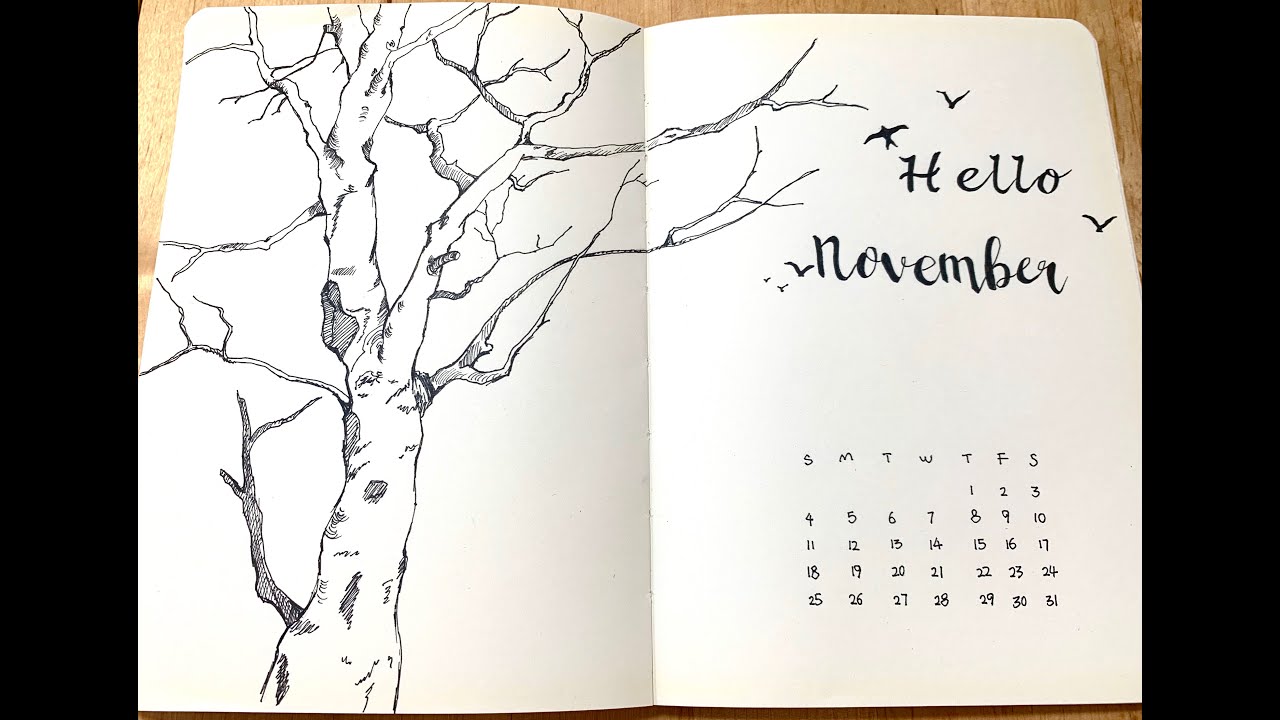 Hello
November
S M T W T F S
1 2 3
4 5 6 7 8 9 10
11 12 13 14 15 16 17
18 19 20 21 22 23 24
25 26 27 28 29 30 31